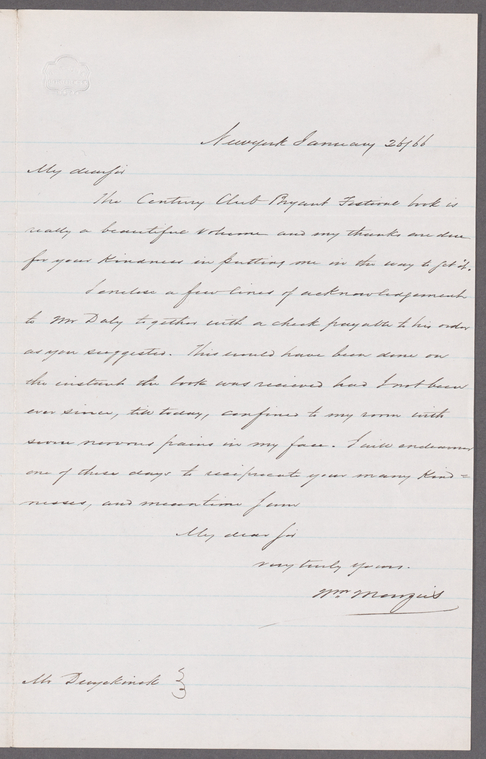 Newyork January 26/66
My dear Sir
The Century Club Bryant Festival book is
really a beautiful volume and my thanks are due
for your kindness in putting me in the way to get it.
I enclose a few lines of acknowledgement
to Mr Daly together with a check payable to his order
as you suggested. This would have been done on
the instant the book was recieved had I not been
ever since, till today, confined to my room with
severe nervous pains in my face. I will endeavour
one of these days to reciprocate your many kind=
nesses, and meantime I am
My dear Sir
very truly yours.
Wm Menzies
Mr Duyckinck